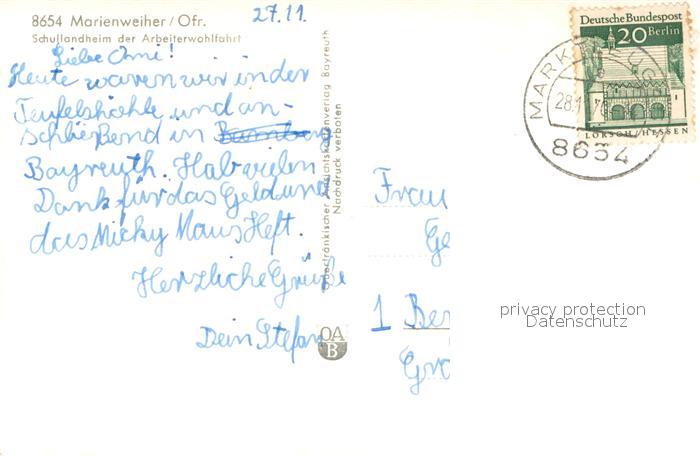 8654 Marienweiher / Ofr.
Schullandheim der Arbeiterwohlfahrt
27.11.
Liebe Omi!
Heute waren wir in der
Teufelshöhle und an-
schließend in
Bayreuth. Hab vielen
Dank für das Geld und
das Micky Maus Heft.
Herzliche Grüße
Dein Stefan
Oberfränkischer Ansichtskartenverlag Bayreuth
Nachdruck verboten
OA
B
Deutsche Bundespost
20 Berlin
LORSCH/HESSEN
MARKTLEUG
28.1
8654
Frau
Ge
1 Ber
Gro
privacy protection
Datenschutz